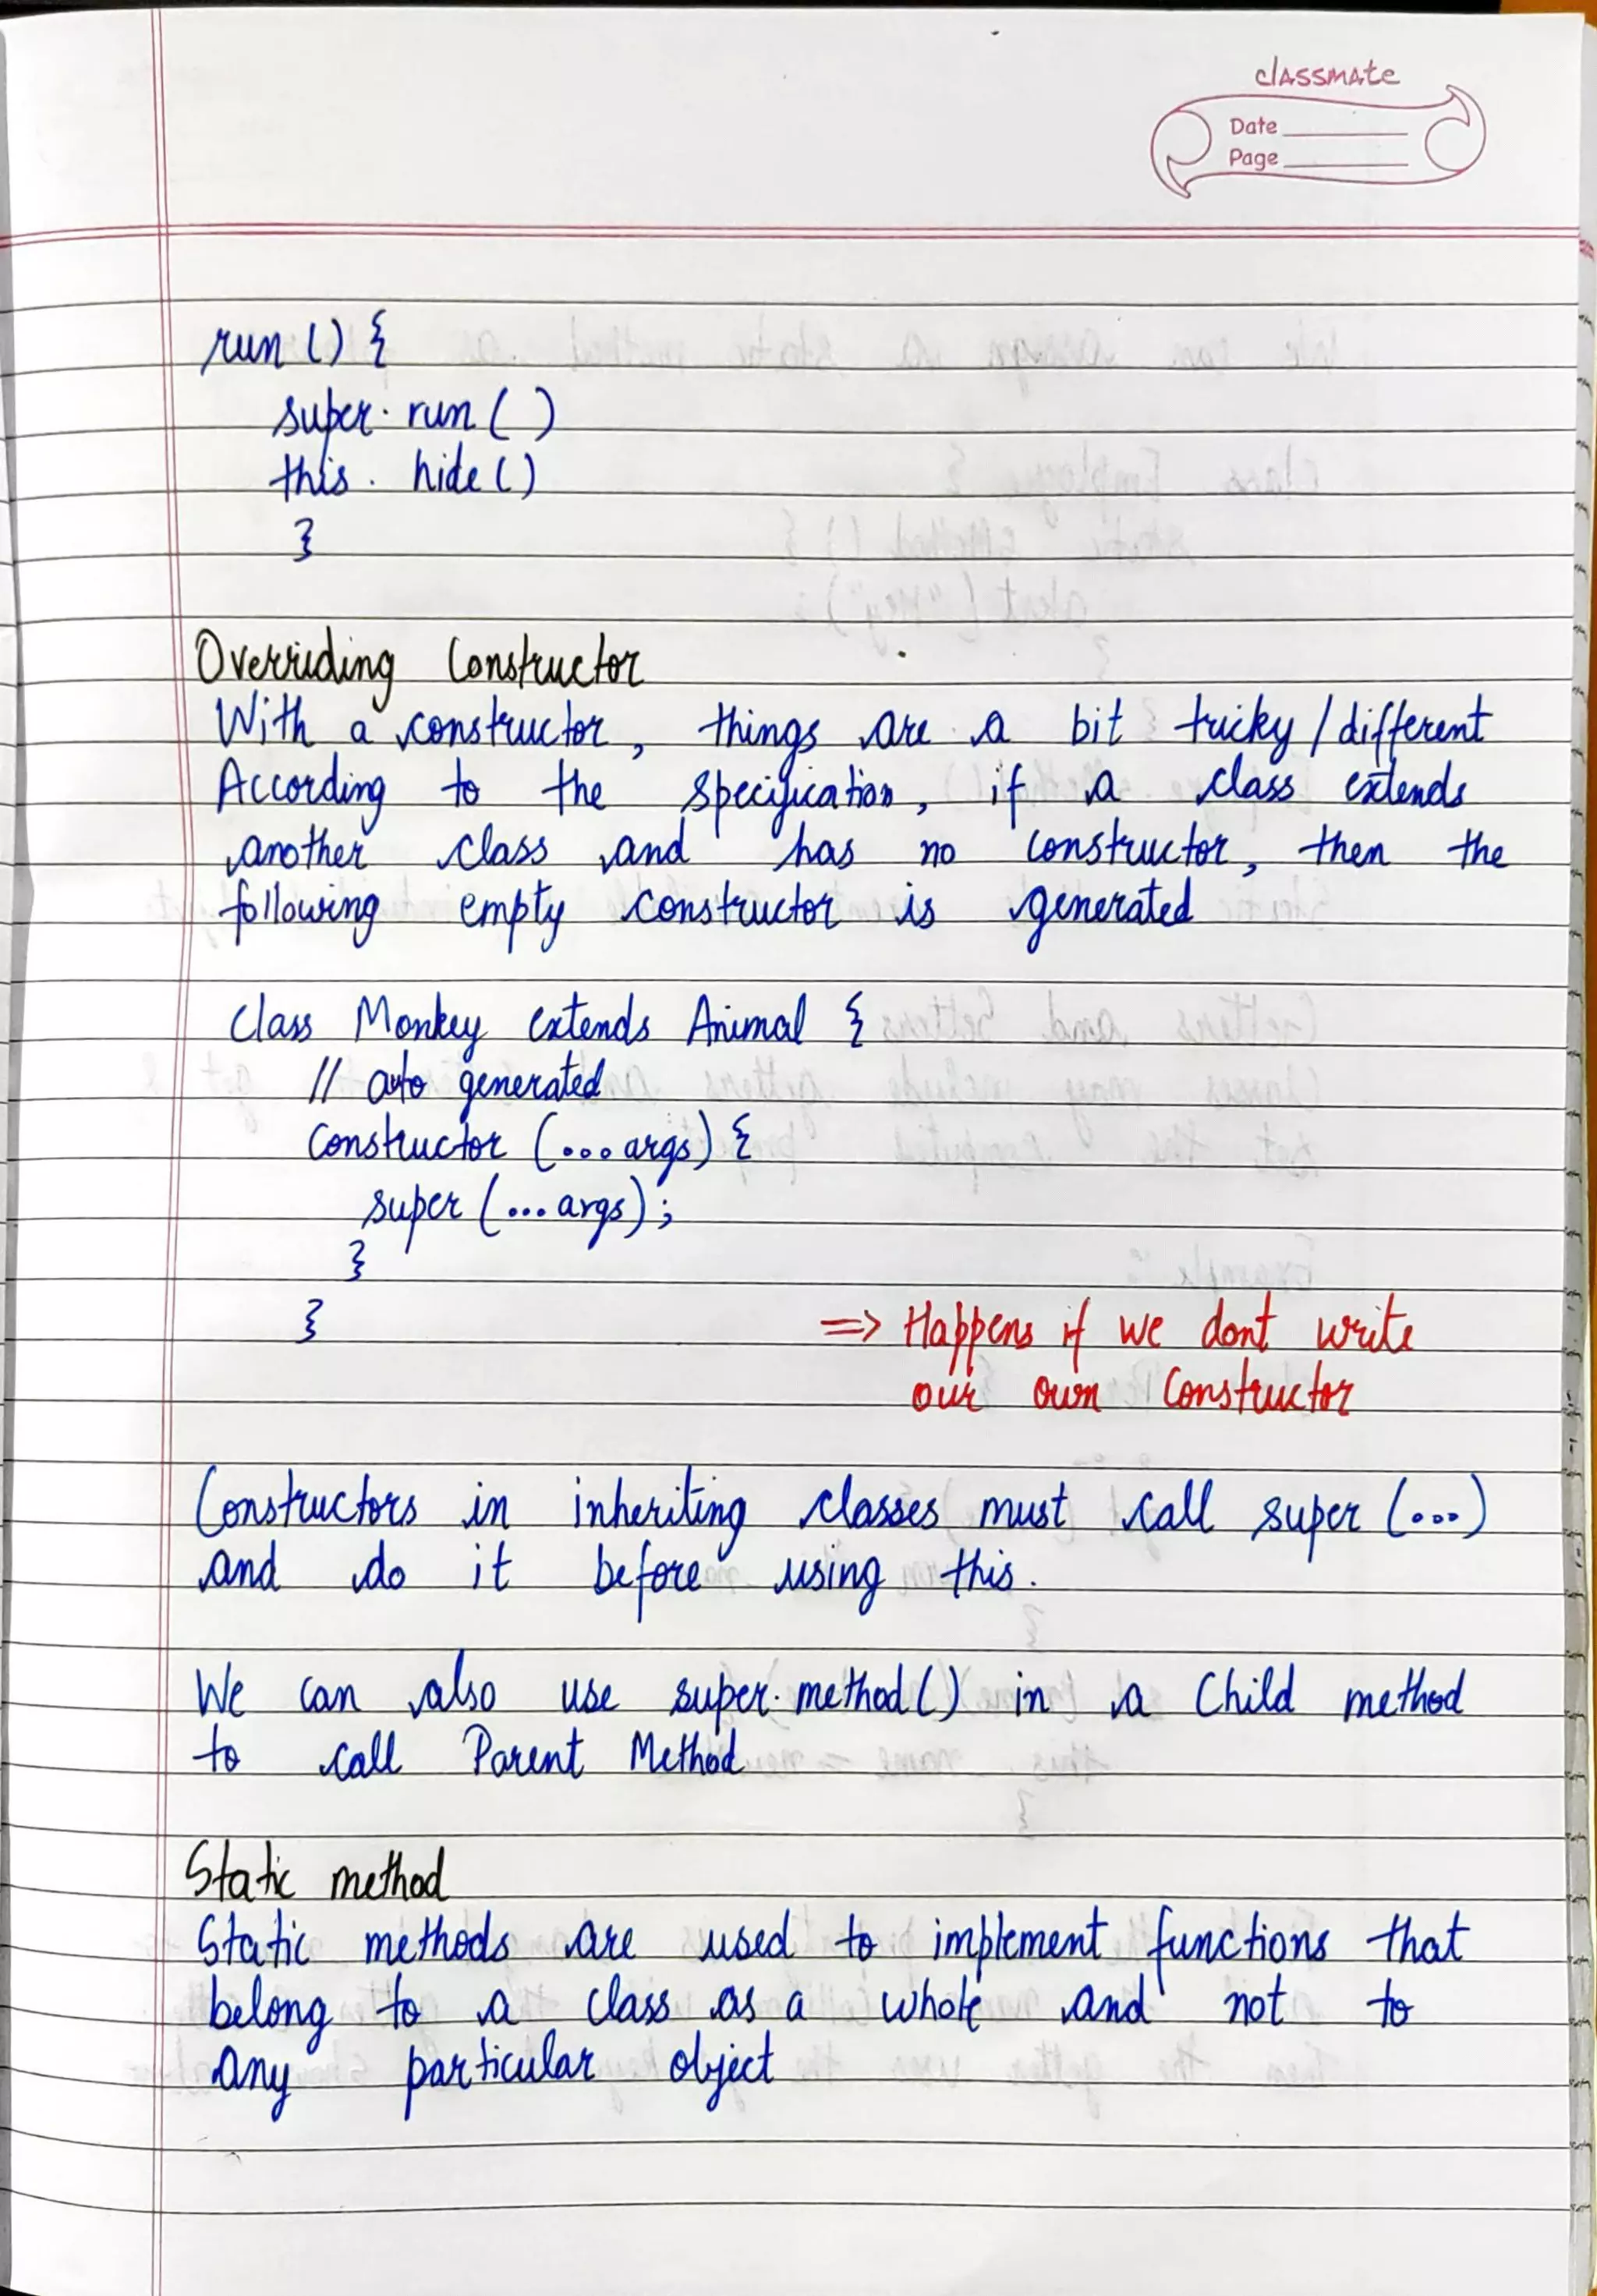 classmate
Date
Page
run () {
super. run ( )
this. hide ()
}
Overriding Constructor
With a constructor, things are a bit tricky / different
According to the specification, if a class extends
another class and has no constructor, then the
following empty constructor is generated
Class Monkey extends Animal {
// auto generated
Constructor (...args) {
super (...args);
}
}
=> Happens if we dont write
our own Constructor
Constructors in inheriting classes must call super (...)
and do it before using this.
We can also use super. method() in a Child method
to call Parent Method
Static method
Static methods are used to implement functions that
belong to a class as a whole and not to
any particular object